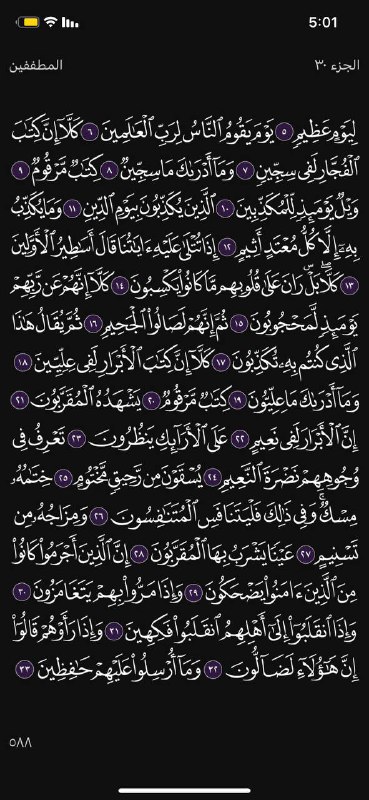 5:01
المطففين
الجزء ٣٠
لِيَوْمٍ عَظِيمٍ ٥ يَوْمَ يَقُومُ ٱلنَّاسُ لِرَبِّ ٱلْعَـٰلَمِينَ ٦ كَلَّآ إِنَّ كِتَـٰبَ
ٱلْفُجَّارِ لَفِى سِجِّينٍ ٧ وَمَآ أَدْرَىٰكَ مَا سِجِّينٌ ٨ كِتَـٰبٌ مَّرْقُومٌ ٩
وَيْلٌ يَوْمَئِذٍ لِّلْمُكَذِّبِينَ ١٠ ٱلَّذِينَ يُكَذِّبُونَ بِيَوْمِ ٱلدِّينِ ١١ وَمَا يُكَذِّبُ
بِهِۦٓ إِلَّا كُلُّ مُعْتَدٍ أَثِيمٍ ١٢ إِذَا تُتْلَىٰ عَلَيْهِ ءَايَـٰتُنَا قَالَ أَسَـٰطِيرُ ٱلْأَوَّلِينَ
١٣ كَلَّا ۖ بَلْ ۜ رَانَ عَلَىٰ قُلُوبِهِم مَّا كَانُوا۟ يَكْسِبُونَ ١٤ كَلَّآ إِنَّهُمْ عَن رَّبِّهِمْ
يَوْمَئِذٍ لَّمَحْجُوبُونَ ١٥ ثُمَّ إِنَّهُمْ لَصَالُوا۟ ٱلْجَحِيمِ ١٦ ثُمَّ يُقَالُ هَـٰذَا
ٱلَّذِى كُنتُم بِهِۦ تُكَذِّبُونَ ١٧ كَلَّآ إِنَّ كِتَـٰبَ ٱلْأَبْرَارِ لَفِى عِلِّيِّينَ ١٨
وَمَآ أَدْرَىٰكَ مَا عِلِّيُّونَ ١٩ كِتَـٰبٌ مَّرْقُومٌ ٢٠ يَشْهَدُهُ ٱلْمُقَرَّبُونَ ٢١
إِنَّ ٱلْأَبْرَارَ لَفِى نَعِيمٍ ٢٢ عَلَى ٱلْأَرَآئِكِ يَنظُرُونَ ٢٣ تَعْرِفُ فِى
وُجُوهِهِمْ نَضْرَةَ ٱلنَّعِيمِ ٢٤ يُسْقَوْنَ مِن رَّحِيقٍ مَّخْتُومٍ ٢٥ خِتَـٰمُهُۥ
مِسْكٌ ۚ وَفِى ذَٰلِكَ فَلْيَتَنَافَسِ ٱلْمُتَنَـٰفِسُونَ ٢٦ وَمِزَاجُهُۥ مِن
تَسْنِيمٍ ٢٧ عَيْنًا يَشْرَبُ بِهَا ٱلْمُقَرَّبُونَ ٢٨ إِنَّ ٱلَّذِينَ أَجْرَمُوا۟ كَانُوا۟
مِنَ ٱلَّذِينَ ءَامَنُوا۟ يَضْحَكُونَ ٢٩ وَإِذَا مَرُّوا۟ بِهِمْ يَتَغَامَزُونَ ٣٠
وَإِذَا ٱنقَلَبُوٓا۟ إِلَىٰٓ أَهْلِهِمُ ٱنقَلَبُوا۟ فَكِهِينَ ٣١ وَإِذَا رَأَوْهُمْ قَالُوٓا۟
إِنَّ هَـٰٓؤُلَآءِ لَضَآلُّونَ ٣٢ وَمَآ أُرْسِلُوا۟ عَلَيْهِمْ حَـٰفِظِينَ ٣٣
٥٨٨